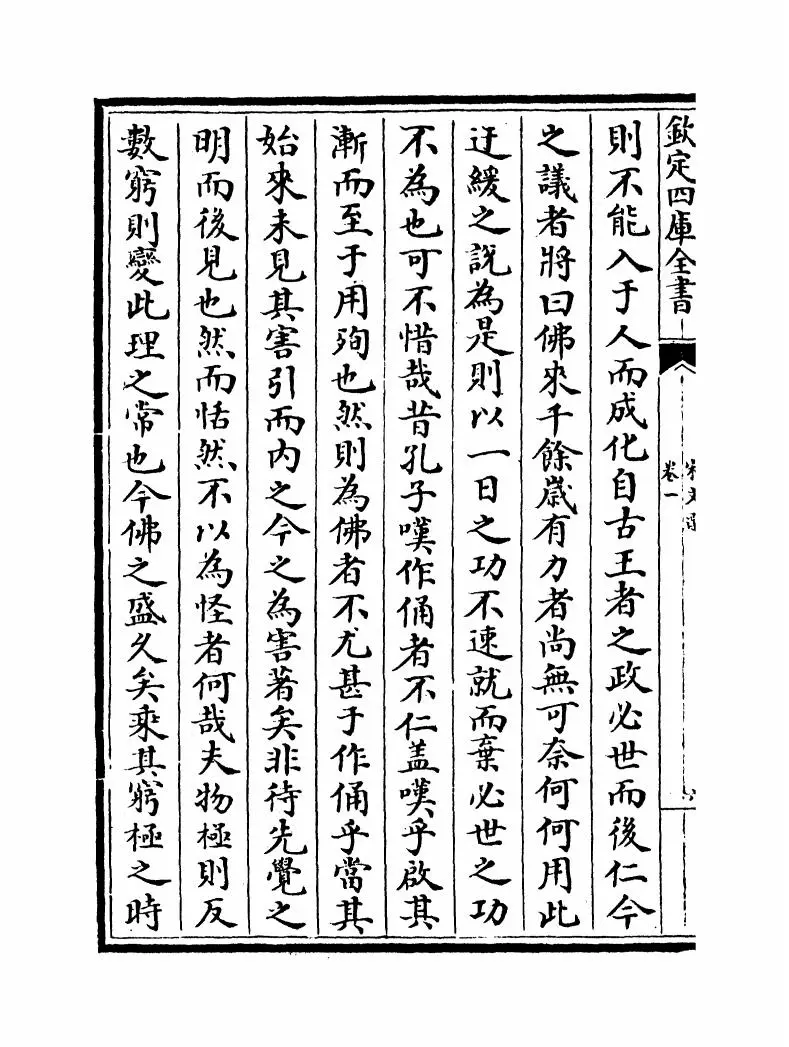 欽定四庫全書
卷一
則不能入于人而成化自古王者之政必世而後仁今
之議者將曰佛來千餘歲有力者尚無可奈何何用此
迂緩之説為是則以一日之功不速就而棄必世之功
不為也可不惜哉昔孔子嘆作俑者不仁盖嘆乎啟其
漸而至于用殉也然則為佛者不尤甚于作俑乎當其
始來未見其害引而内之今之為害著矣非待先覺之
明而後見也然而恬然不以為怪者何哉夫物極則反
數窮則變此理之常也今佛之盛久矣乘其窮極之時